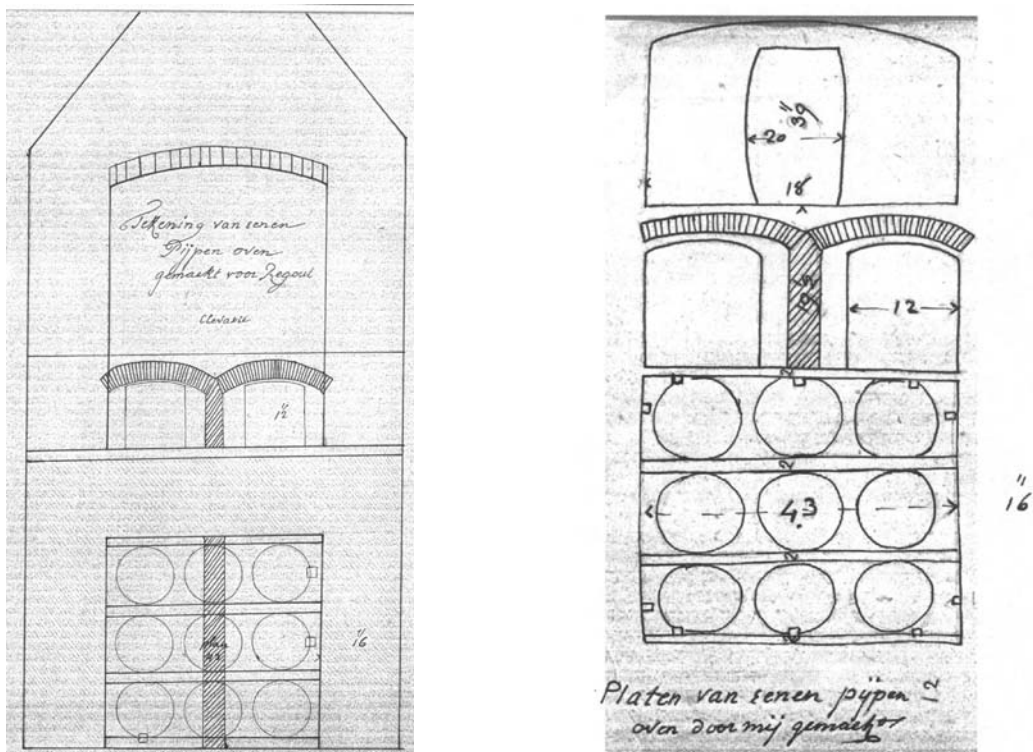 Tekening van eenen
Pijpen oven
gemaekt voor Regout
Elevatie
12"
16"
plan
43
39"
20
18
12
2
2
43
2
16"
Platen van eenen pijpen
oven door mij gemaekt
12